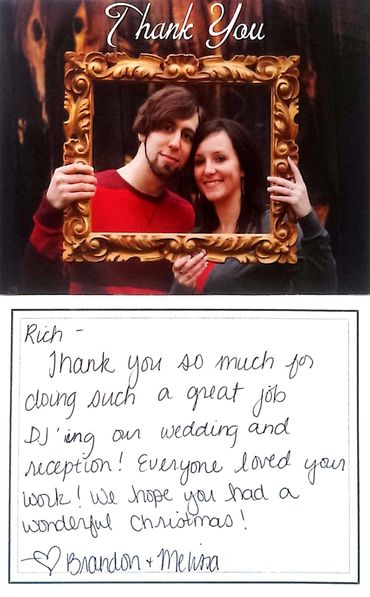 Thank You
Rich -
Thank you so much for
doing such a great job
DJ'ing our wedding and
reception! Everyone loved your
work! We hope you had a
wonderful Christmas!
-♡ Brandon + Melissa